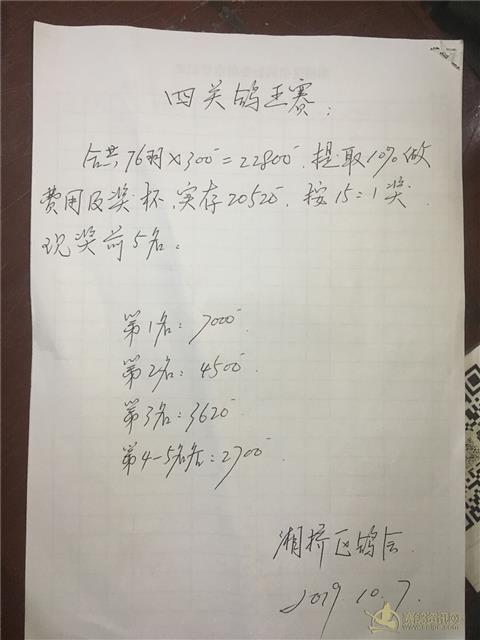 四关鸽王赛:
合共76羽×300=22800.提取10%做
费用及奖杯,实存20520.按15:1奖.
现奖前5名:
第1名:7000.
第2名:4500.
第3名:3620.
第4-5名各:2700.
湘桥区鸽会
2019.10.7.
赛鸽资讯网